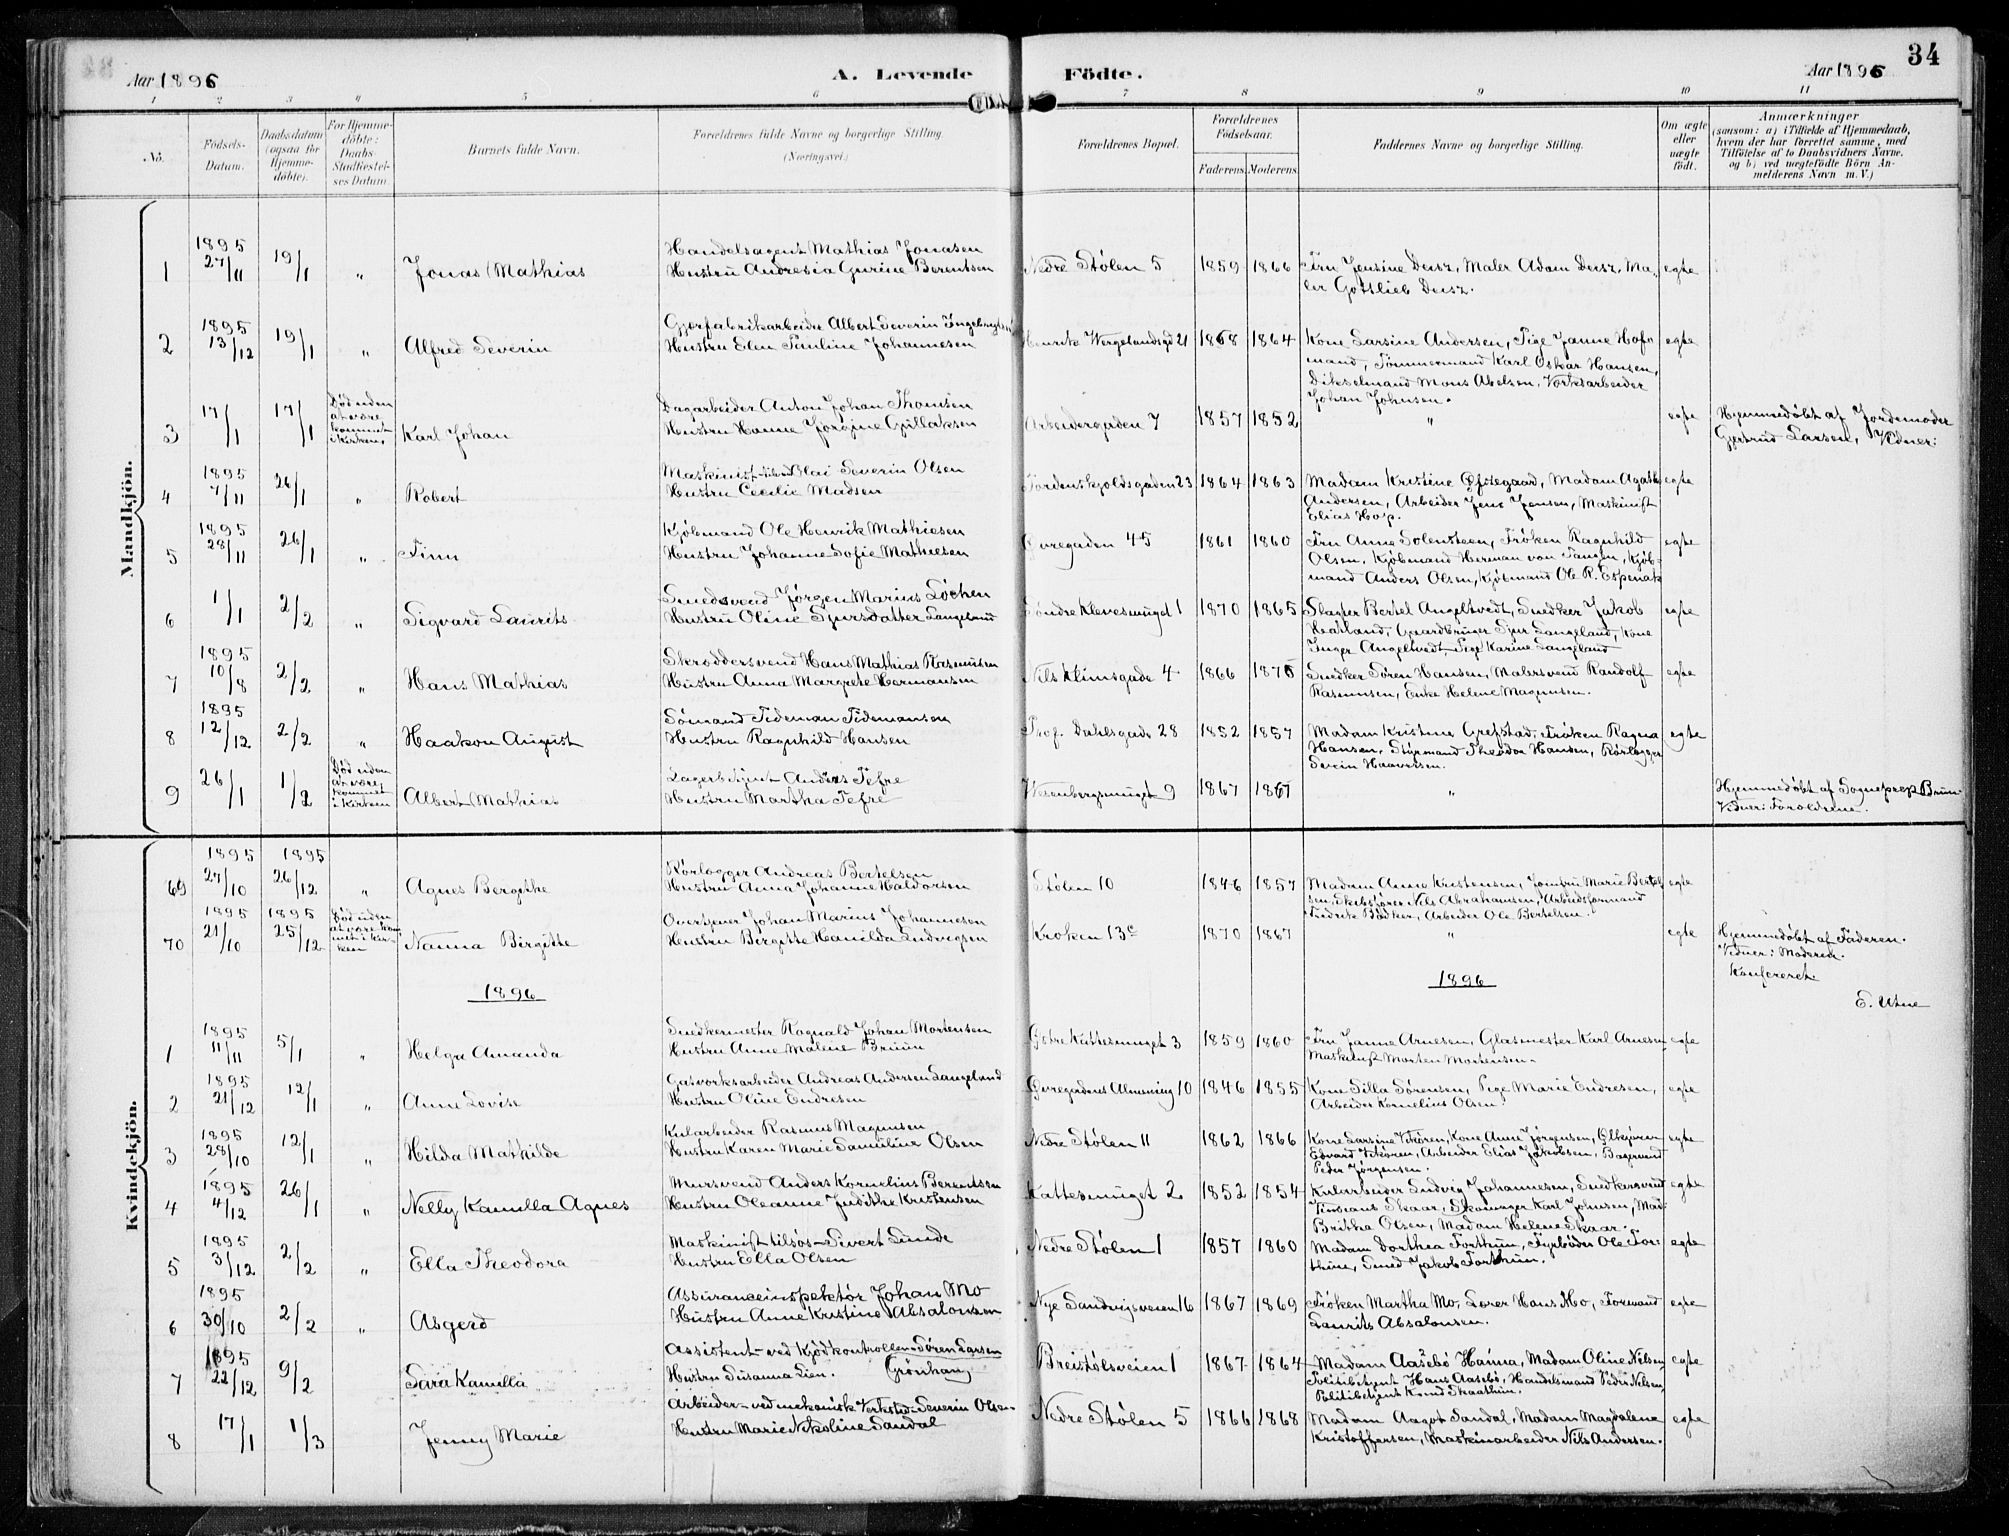 34
Aar 1896 A. Levende Födte. Aar 1896
1 2 3 4 5 6 7 8 9 10 11
No.
Födsels-Datum.
Daabsdatum (ogsaa for Hjemmedöbte).
For Hjemmedöbte: Daabs-Stadfæstelses Datum.
Barnets fulde Navn.
Forældrenes fulde Navne og borgerlige Stilling.
(Næringsvei.)
Forældrenes Bopæl.
Forældrenes Födselsaar.
Faderens. Moderens.
Faddernes Navne og borgerlige Stilling.
Om ægte eller uægte födt.
Anmærkninger
(saasom: a) i Tilfælde af Hjemmedaab,
hvem der har forrettet samme, med
Tilföielse af to Daabsvidners Navne.
og b) ved uægtefödte Börn Anmelderens Navn m. V.)
Mandkjön.
1 1895 27/11 19/1 " Jonas Mathias
Handelsagent Mathias Jonasen
Hustru Andresia Gurine Berentsen
Nedre Stølen 5 1859 1866
Fru Jensine Deisz, Maler Adam Deisz, Maler Gottlieb Deisz.
egte
2 1895 13/12 19/1 " Alfred Severin
Gjærfabrikarbeider Albert Severin Ingebrigtsen
Hustru Elen Pauline Johannesen
Henrik Wergelandsgd 21 1868 1864
Kone Larsine Andersen, Pige Janne Hofmand, Tømmermand Karl Oskar Hansen,
Dikselmand Mons Abelsen, Verksarbeider
Johan Johnsen.
egte
3 17/1 17/1 Død uden at være kommet i Kirken, Karl Johan
Dagarbeider Anton Johan Thomsen
Hustru Hanne Jørgine Gullaksen
Arbeidergaden 7 1857 1852 " egte
Hjemmedøbt af Jordemoder
Gjertrud Larsen, Vidner:
4 1895 7/11 26/1 " Robert
Maskinist tilsøs Olai Severin Olsen
Hustru Cecilie Madsen
Tordenskjoldsgaden 23 1864 1863
Madam Kristine Øfstegaard, Madam Agathe
Andersen, Arbeider Jens Jensen, Maskinist
Elias Hop.
egte
5 1895 28/11 26/1 " Finn
Kjøbmand Ole Henrik Mathiesen
Hustru Johanne Sofie Mathiesen
Øvregaden 45 1861 1860
Fru Anne Solensteen, Frøken Ragnhild
Olsen, Kjøbmand Herman von Tangen, Kjøbmand Anders Olsen, Kjøbmand Ole R. Espenak
egte
6 1/1 2/2 " Sigvard Laurits
Smedsvend Jørgen Marius Løchen
Hustru Oline Sjursdatter Langeland
Søndre Klevesmuget 1 1870 1865
Slagter Bertel Angeltvedt, Snedker Jakob
Hatland, Gaardbruger Sjur Langeland, Kone
Inger Angeltvedt, Pige Karine Langeland
egte
7 1895 10/8 2/2 " Hans Mathias
Skræddersvend Hans Mathias Rasmussen
Hustru Anna Margrete Hermansen
Nils Klimsgade 4 1866 1875
Snedker Søren Hansen, Malersvend Randolf
Rasmussen, Enke Helene Magnusen.
egte
8 1895 12/12 2/2 " Haakon August
Sømand Tideman Tidemansen
Hustru Ragnhild Hansen
Prof. Dahlsgade 28 1852 1857
Madam Kristine Grefstad, Frøken Ragna
Hansen, Styrmand Theodor Hansen, Rørlægger
Severin Haaversen.
egte
9 26/1 1/2 Død uden at være kommet i Kirken Albert Mathias
Lagerbetjent Anders Tefre
Hustru Martha Tefre
Vetenbergsmuget 9 1867 1867 "
Hjemmedøbt af Sogneprep Bruun
Vidner: Forældrene.
Kvindekjön.
69 1895 27/10 1895 26/12 " Agnes Bergithe
Rørlægger Andreas Bertelsen
Hustru Anna Johanne Haldorsen
Stølen 10 1846 1857
Madam Anne Kristensen, Jomfru Marie Bertelsen, Skibsfører Nils Abrahamsen, Arbeidsformand
Fredrik Bødker, Arbeider Ole Bertelsen.
egte
70 1895 21/10 1895 25/12 Død uden at være kommet i Kirken Nanna Birgitte
Overtjener Johan Marius Johannesen
Hustru Birgitte Hamilda Ludvigsen
Kroken 13c 1870 1867 " egte
Hjemmedøbt af Faderen.
Vidner: Moderen.
Konfereret.
E. Utne
1896 1896
1 1895 11/11 5/1 " Helga Amanda
Snedkermester Ragnald Johan Mortensen
Hustru Anne Malene Bruun
Østre Kattesmuget 3 1859 1860
Fru Janne Arnesen, Glasmester Karl Arnesen
Maskinist Morten Mortensen.
egte
2 1895 21/12 12/1 " Anne Lovise
Gasværksarbeider Andreas Andersen Langeland
Hustru Oline Endresen
Øvregadens Almening 10 1846 1855
Kone Silla Sørensen, Pige Marie Endresen,
Arbeider Kornelius Olsen.
egte
3 1895 28/10 12/1 " Hilda Mathilde
Kularbeider Rasmus Magnusen
Hustru Karen Marie Samuline Olsen
Nedre Stølen 11 1862 1866
Kone Larsine Vikøren, Kone Anne Jørgensen, Ølkjører
Edvard Vikøren, Arbeider Elias Jakobsen, Bagersvend
Peder Jørgensen.
egte
4 1895 4/12 26/1 " Nelly Kamilla Agnes
Mursvend Anders Kornelius Berentsen
Hustru Oleanne Judithe Kristensen
Kattesmuget 2 1852 1854
Kularbeider Ludvig Johannesen, Snedkersvend
Tinseans Skaar, Skomager Karl Johnsen, Mad:
Britha Olsen, Madam Helene Skaar.
egte
5 1895 3/12 2/2 " Ella Theodora
Maskinist tilsøs Sivert Lunde
Hustru Ella Olsen
Nedre Stølen 1 1857 1860
Madam Dorthea Forthun, Fyrbøder Ole Forthun, Smed Jakob Forthun.
egte
6 1895 30/10 2/2 " Asgerd
Assuranceinspektør Johan Mo
Hustru Anne Kristine Absalonsen
Nye Sandvigsveien 16 1867 1869
Frøken Martha Mo, Lærer Hans Mo, Formand
Laurits Absalonsen.
egte
7 1895 22/12 9/2 Sara Kamilla
Assistent ved Kjødkontrollen Søren Larsen
Grönhaug
Hustru Susanna Lien.
Breistølsveien 1 1867 1864
Madam Aasebø Hanna, Madam Oline Nielsen
Politibetjent Hans Aasebø, Handelsmand Peder Nielsen,
Politibetjent Knud Skaathun.
egte
8 17/1 1/3 Jenny Marie
Arbeider ved mekanisk Verksted Severin Olsen
Hustru Marie Nikoline Sandal
Nedre Stølen 5 1866 1868
Madam Aagot Sandal, Madam Magdalena
Kristoffersen, Maskinarbeider Nils Andersen.
egte